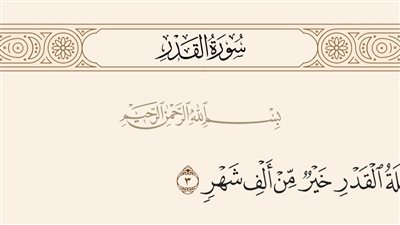 سُورَةُ الْقَدْرِ
بِسْمِ اللَّهِ الرَّحْمَٰنِ الرَّحِيمِ
لَةُ الْقَدْرِ خَيْرٌ مِّنْ أَلْفِ شَهْرٍ ٣